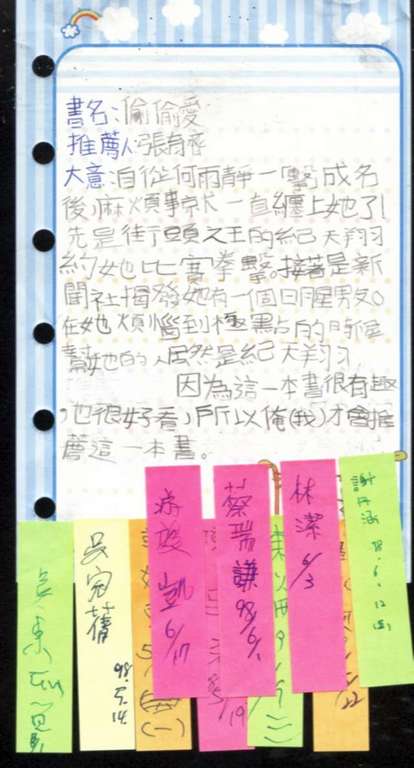 書名:偷偷愛
推薦人:張有齊
大意:自從何雨靜一擊成名
後,麻煩事就一直纏上她了!
先是街頭之王的紀天翔
約她比賽拳擊。接著是新
聞社揭發她有一個明星男友。
在她煩惱到極點的時候
幫她的人居然是紀天翔,
因為這一本書很有趣
,也很好看,所以俺(我)才會推
薦這一本書。
吳宛蒨
98.5.14
凱
6/17
蔡瑞謙
98/6/1
林潔
6/3
謝
98.6.12
(五)
5/19
(一)
(二)
5/22